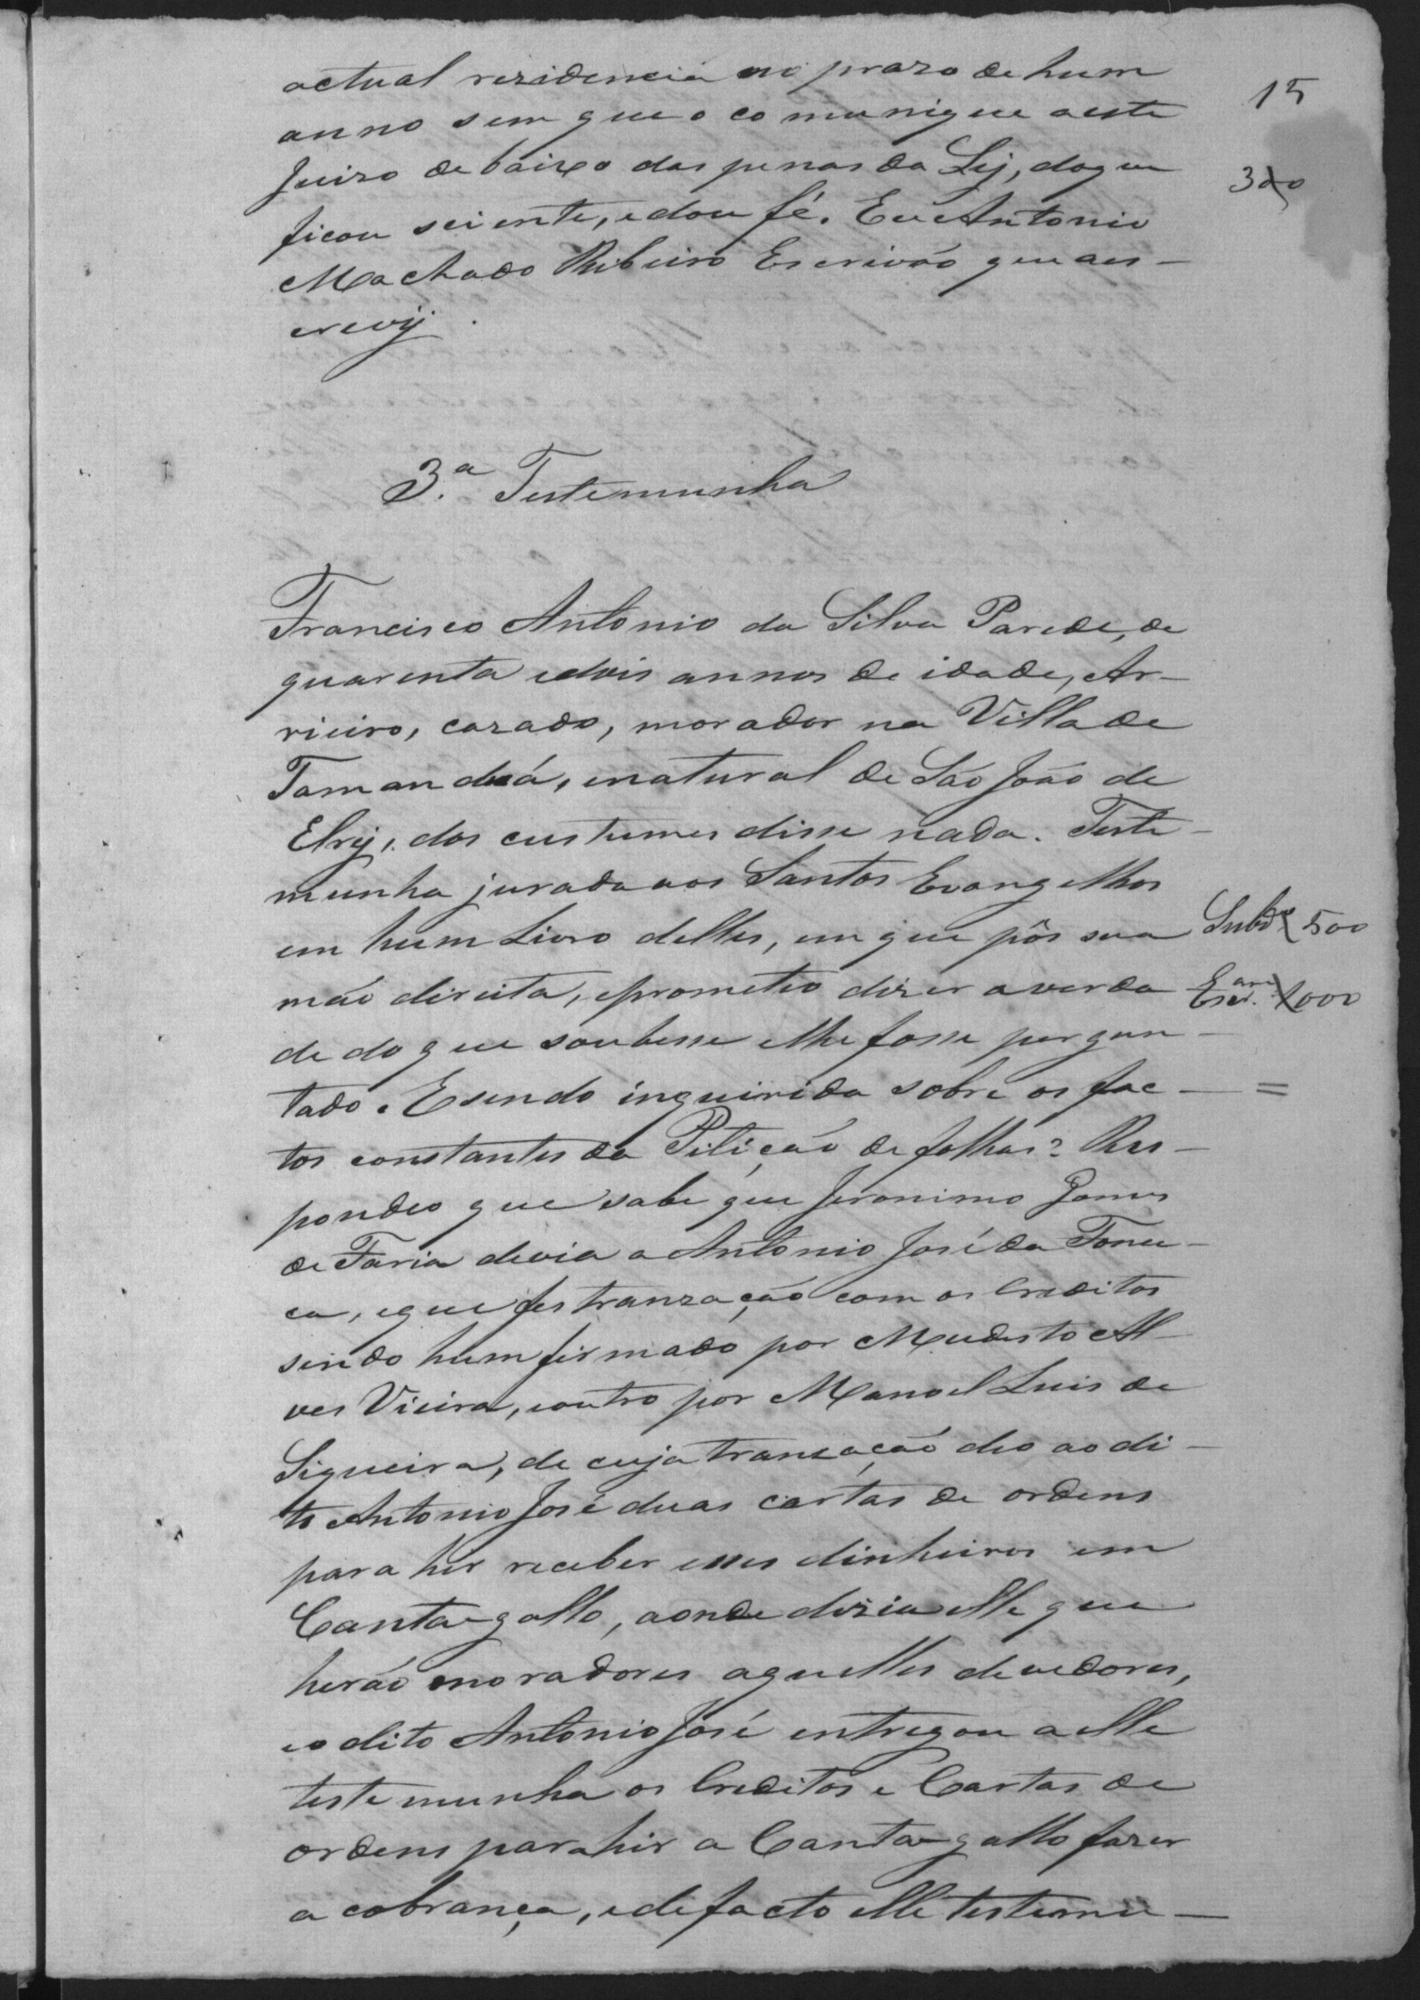 15
actual rezidencia no prazo de hum
anno sem que o comunique a este
Juizo debaixo das penas da Lej, do q~
ficou sciente, e dou fé. Eu Antonio
Machado Ribeiro Escrivão que aes-
crevij.
300
3.a Testemunha
Francisco Antonio da Silva Parede, de
quarenta e dois annos de idade, Ar-
rieiro, cazado, morador na Villa de
Tamanduá, enatural de São João de
Elrij, dos custumes disse nada. Teste-
munha jurada aos Santos Evangelhos
em hum Livro delles, em que pôs sua
mão direita, eprometeo dizer averda
de do que soubesse elhe fosse pergun-
tado. Esendo inquirida sobre os fac-
tos constantes da Petição de folhas? Res-
pondeo que sabe que Jeronimo Gomes
de Faria devia a Antonio José da Fonce-
ca, eque fes tranzação com os Creditos
sendo hum firmado por Mudesto Al-
ves Vieira, eoutro por Manoel Luis de
Siqueira, de cuja tranzação deo ao di-
to Antonio José duas cartas de ordens
para hir receber esses dinheiros em
Canta-gallo, aonde dizia elle que
herão moradores aquelles devedores,
eo dito Antonio José entregou a elle
testemunha os Creditos e Cartas de
ordens para hir a Canta-gallo fazer
a cobrança, ede facto elle testemu-
500
1000
=